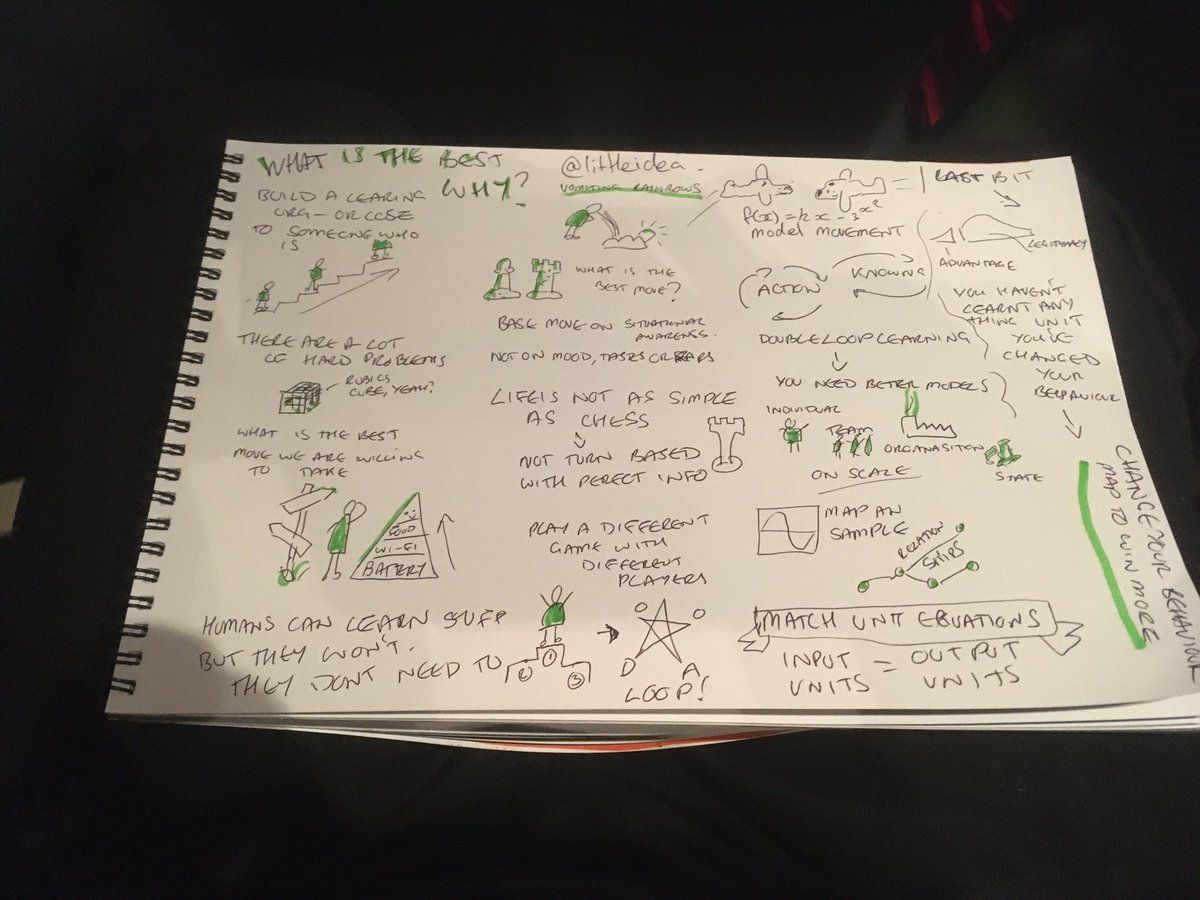 WHAT IS THE BEST
WHY?
BUILD A LEARING
ORG - OR LOSE
TO SOMEONE WHO
IS
THERE ARE A LOT
OF HARD PROBLEMS
RUBICS
CUBE, YEAH?
WHAT IS THE BEST
MOVE WE ARE WILLING
TO TAKE
FOOD
WI-FI
BATTERY
HUMANS CAN LEARN STUFF
BUT THEY WON'T.
THEY DONT NEED TO
@littleidea.
VOMITING RAINBOWS
WHAT IS THE
BEST MOVE?
BASE MOVE ON SITUATIONAL
AWARENSS.
NOT ON MOOD, TASES OR FEARS
LIFE IS NOT AS SIMPLE
AS CHESS
NOT TURN BASED
WITH PERECT INFO
PLAY A DIFFERENT
GAME WITH
DIFFERENT
PLAYERS
2 1 3
O O
D A
LOOP!
MODEL MOVEMENT
ACTION
KNOWING
DOUBLE LOOP LEARNING
YOU NEED BETER MODELS
INDIVIDUAL
TEAM
ORGANASITON
STATE
ON SCALE
MAP AN
SAMPLE
RELATION
SHIPS
MATCH UNIT EQUATIONS
INPUT = OUTPUT
UNITS UNITS
LAST BIT
LEGITIMACY
ADVANTAGE
YOU HAVEN'T
LEARNT ANY
THING UNIT
YOU'VE
CHANGED
YOUR
BEHAVIOUR
CHANGE YOUR BEHAVIOUR
MAP TO WIN MORE